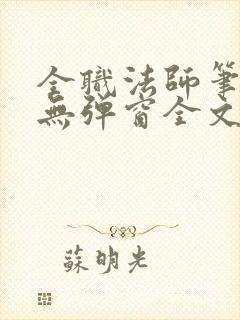 全職法師筆
無彈窗全文
蘇明光